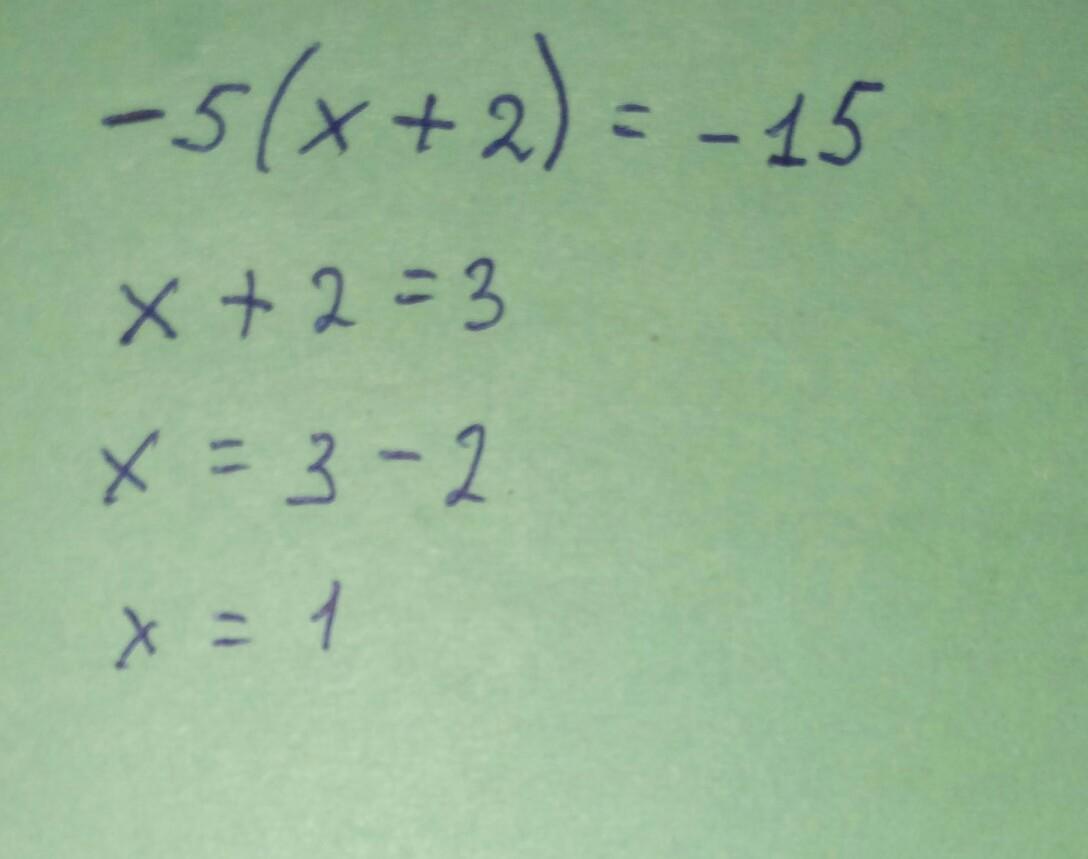 -5(x+2) = -15
x + 2 = 3
x = 3 - 2
x = 1